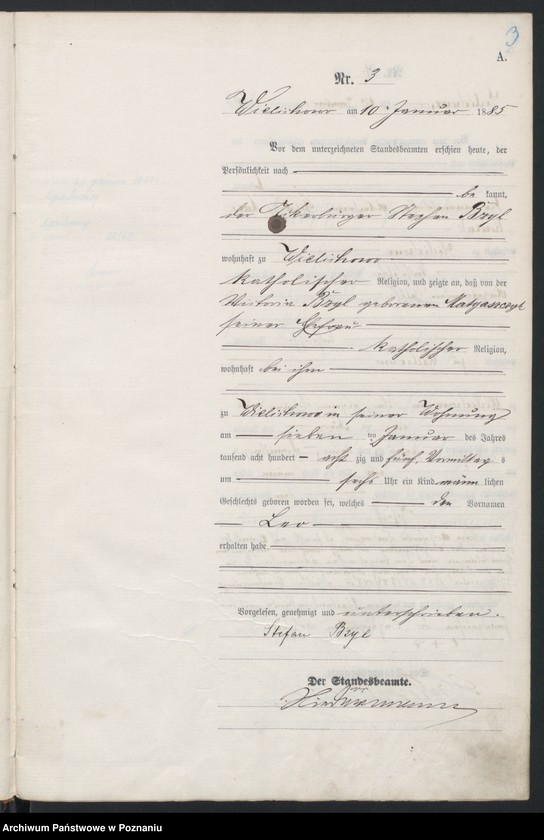 3
A.
Nr. 3
Wielichowo am 10. Januar 1885
Vor dem unterzeichneten Standesbeamten erschien heute, der
Persönlichkeit nach
be kannt,
der Ackerbürger Stephan Bzyl
wohnhaft zu Wielichowo
katholischer Religion, und zeigte an, daß von der
Victoria Bzyl geborenen
seiner Ehefrau
katholischer Religion,
wohnhaft bei ihm
zu Wielichowo in seiner Wohnung
am sieben ten Januar des Jahres
tausend acht hundert acht zig und fünf Vormittag s
um sechs Uhr ein Kind männ lichen
Geschlechts geboren worden sei, welches den Vornamen
Leo
erhalten habe
Vorgelesen, genehmigt und unterschrieben.
Stefan Bzyl
Der Standesbeamte.
Archiwum Państwowe w Poznaniu